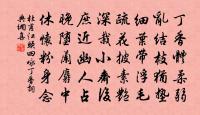 丁香體柔弱
亂結枝猶墊
細葉帶浮毛
疏花披素艷
深栽小齋後
庶近幽人占
晚墮蘭麝中
休懷粉身念
杜甫江頭四詠丁香